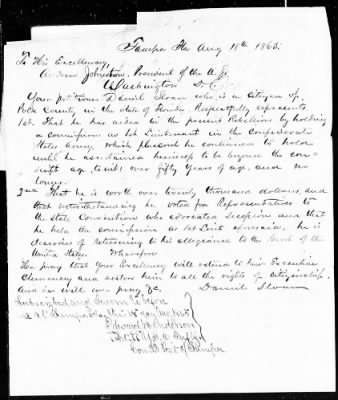 Tampa Fla Aug 18th 1865.
To His Excellency,
Andrew Johnson, President of the U.S.
Washington D.C.
Your petitioner Daniel Sloan who is a citizen of
Polk County, in the State of Florida Respectfully represents
1st. That he has aided in the present Rebellion by holding
a commission as 1st Lieutenant in the Confederate
States Army, which he continued to hold
until he ascertained himself to be beyond the con-
script age, to wit: over fifty years of age, and no
longer.
2nd That he is worth over twenty thousand dollars, and
that notwithstanding he voted for Representatives to
the State Convention who advocated secession and that
he held the commission as 1st Lieut aforesaid, he is
desirous of returning to his allegiance to the Govt of the
United States. Wherefore
He pray that Your Excellency will extend to him Executive
Clemency and restore him to all the rights of citizenship.
And he will ever pray &c.
Daniel Sloan
Subscribed and Sworn to before
me at Tampa Fla this 18 day Aug 1865
Edward Anderson
Comdg Post of Tampa